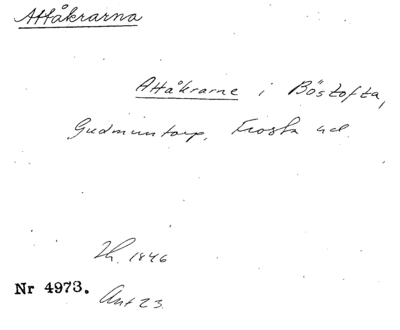 Attåkrarna
Attåkrarne i Böstofta,
Gudmuntorp, Frosta hd.
Lh. 1846
Nr 4973.
Ant 23.